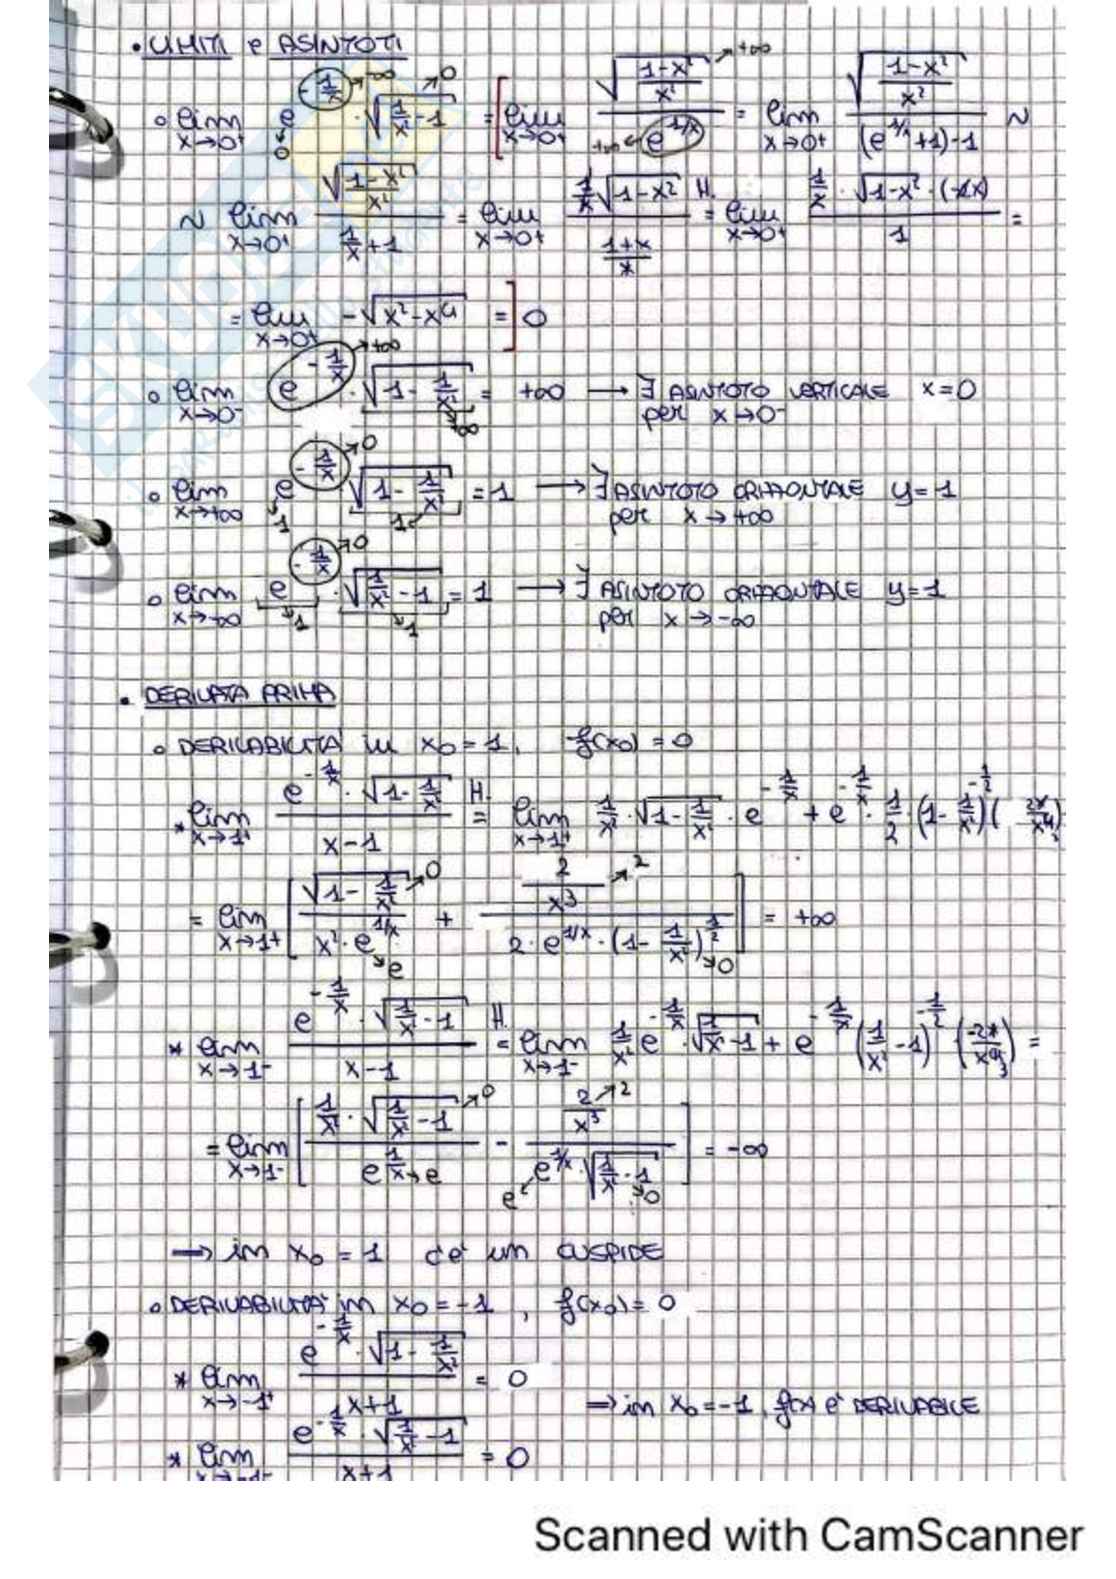 • LIMITI e ASINTOTI
∘ lim x→0+ e^(-1/x)→-∞ →0 · √(1/x² - 1) →0 = [ lim x→0+ √((1-x²)/x²) →+∞ / +∞← e^(1/x) = lim x→0+ √((1-x²)/x²) / (e^(1/x)+1)-1 ~
~ lim x→0+ √((1-x²)/x²) / (1/x + 1) = lim x→0+ 1/x √(1-x²) / ((1+x)/x) H. = lim x→0+ 1/x · √(1-x²) · (-2x) / 1 =
= lim x→0+ -√(x²-x⁴) = ] 0
∘ lim x→0- e^(-1/x) →+∞ · √(1 - 1/x²) →+∞ = +∞ → ∃ ASINTOTO VERTICALE x=0
per x→0-
∘ lim x→+∞ e^(-1/x) →0 →1 · √(1 - 1/x²) →1 = 1 → ∃ ASINTOTO ORIZZONTALE y=1
per x→+∞
∘ lim x→-∞ e^(-1/x) →0 →1 · √(1/x² - 1) →1 = 1 → ∃ ASINTOTO ORIZZONTALE y=1
per x→-∞
• DERIVATA PRIMA
∘ DERIVABILITÀ in x₀=1, f(x₀)=0
* lim x→1+ e^(-1/x) · √(1 - 1/x²) / (x-1) H. = lim x→1+ 1/x² · √(1 - 1/x²) · e^(-1/x) + e^(-1/x) · 1/2 · (1 - 1/x²)^(-1/2) (2x/x⁴)
= lim x→1+ [ √(1 - 1/x²) →0 / x² · e^(1/x) →e + 2/x³ →2 / 2 · e^(1/x) · (1 - 1/x²)^(1/2) →0 ] = +∞
* lim x→1- e^(-1/x) · √(1/x² - 1) / (x-1) H. = lim x→1- 1/x² e^(-1/x) · √(1/x² - 1) + e^(-1/x) (1/x² - 1)^(-1/2) · (-2x/x⁴3) =
= lim x→1- [ 1/x² · √(1/x² - 1) →0 / e^(1/x) →e - 2/x³ →2 / e^(1/x) · √(1/x² - 1) e← →0 ] = -∞
⟹ in x₀ = 1 c'è un CUSPIDE
∘ DERIVABILITÀ in x₀=-1, f(x₀)=0
* lim x→-1+ e^(-1/x) · √(1 - 1/x²) / (x+1) = 0
⟹ in x₀=-1, f(x) è DERIVABILE
* lim x→-1- e^(-1/x) · √(1/x² - 1) / (x+1) = 0
Scanned with CamScanner